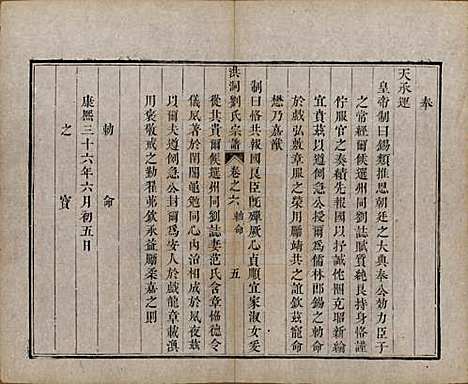 奉
天承運
皇帝制曰錫類推恩朝廷之大典奉公効力臣子
之常經爾候選州同劉誌賦質純良持身恪謹
佇服官之奏績先報國以抒誠佗圑克昭新綸
宜貴茲以道倒急公授爾為儒林郎錫之勅命
於戲弘敷章服之榮用勵靖共之誼欽茲寵命
懋乃嘉猷
制曰恪共報國良臣旣殫厥心貞順宜家淑女爰
從其貴爾候選州同劉誌妻范氏含章循德令
儀夙著於閨闈黽勉同心內治相成於夙夜茲
以爾夫道倒急公封爾為安人於戲龍章載渙
用褒敬戒之勤翟茀欽承益勵柔嘉之則
勅命
康熙三十六年六月初五日
之寶
洪洞劉氏宗譜
卷之六
勅命
五